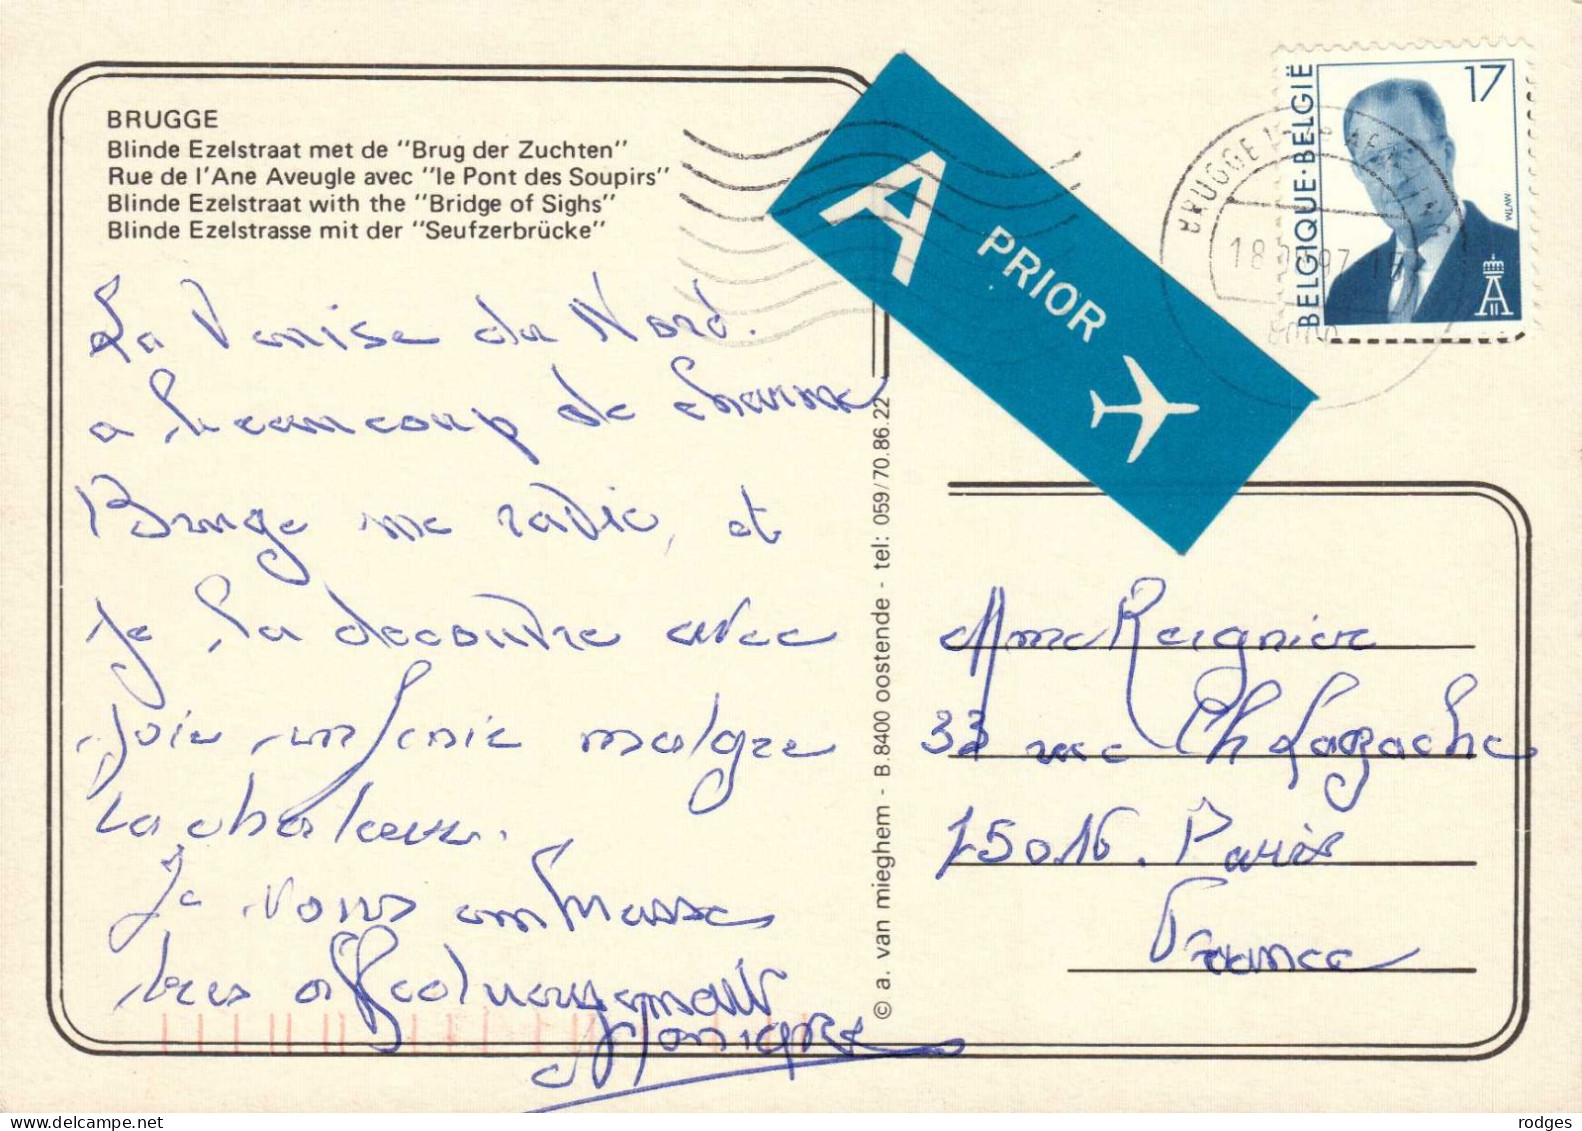 BRUGGE
Blinde Ezelstraat met de "Brug der Zuchten"
Rue de l'Ane Aveugle avec "le Pont des Soupirs"
Blinde Ezelstraat with the "Bridge of Sighs"
Blinde Ezelstrasse mit der "Seufzerbrücke"
La Venise du Nord.
a beaucoup de charme
Bruge me ravie, et
je la decouvre avec
joie infinie malgre
la chaleur.
Je vous embrasse
tres affectueusement
Monique
© a. van mieghem - B.8400 oostende - tel: 059/70.86.22
A PRIOR
17
BELGIQUE·BELGIË
MVTM
A II
BRUGGE 1
18 97 15
8000
Mme Reignier
33 rue Ch Lagache
75016. Paris
France
rodges